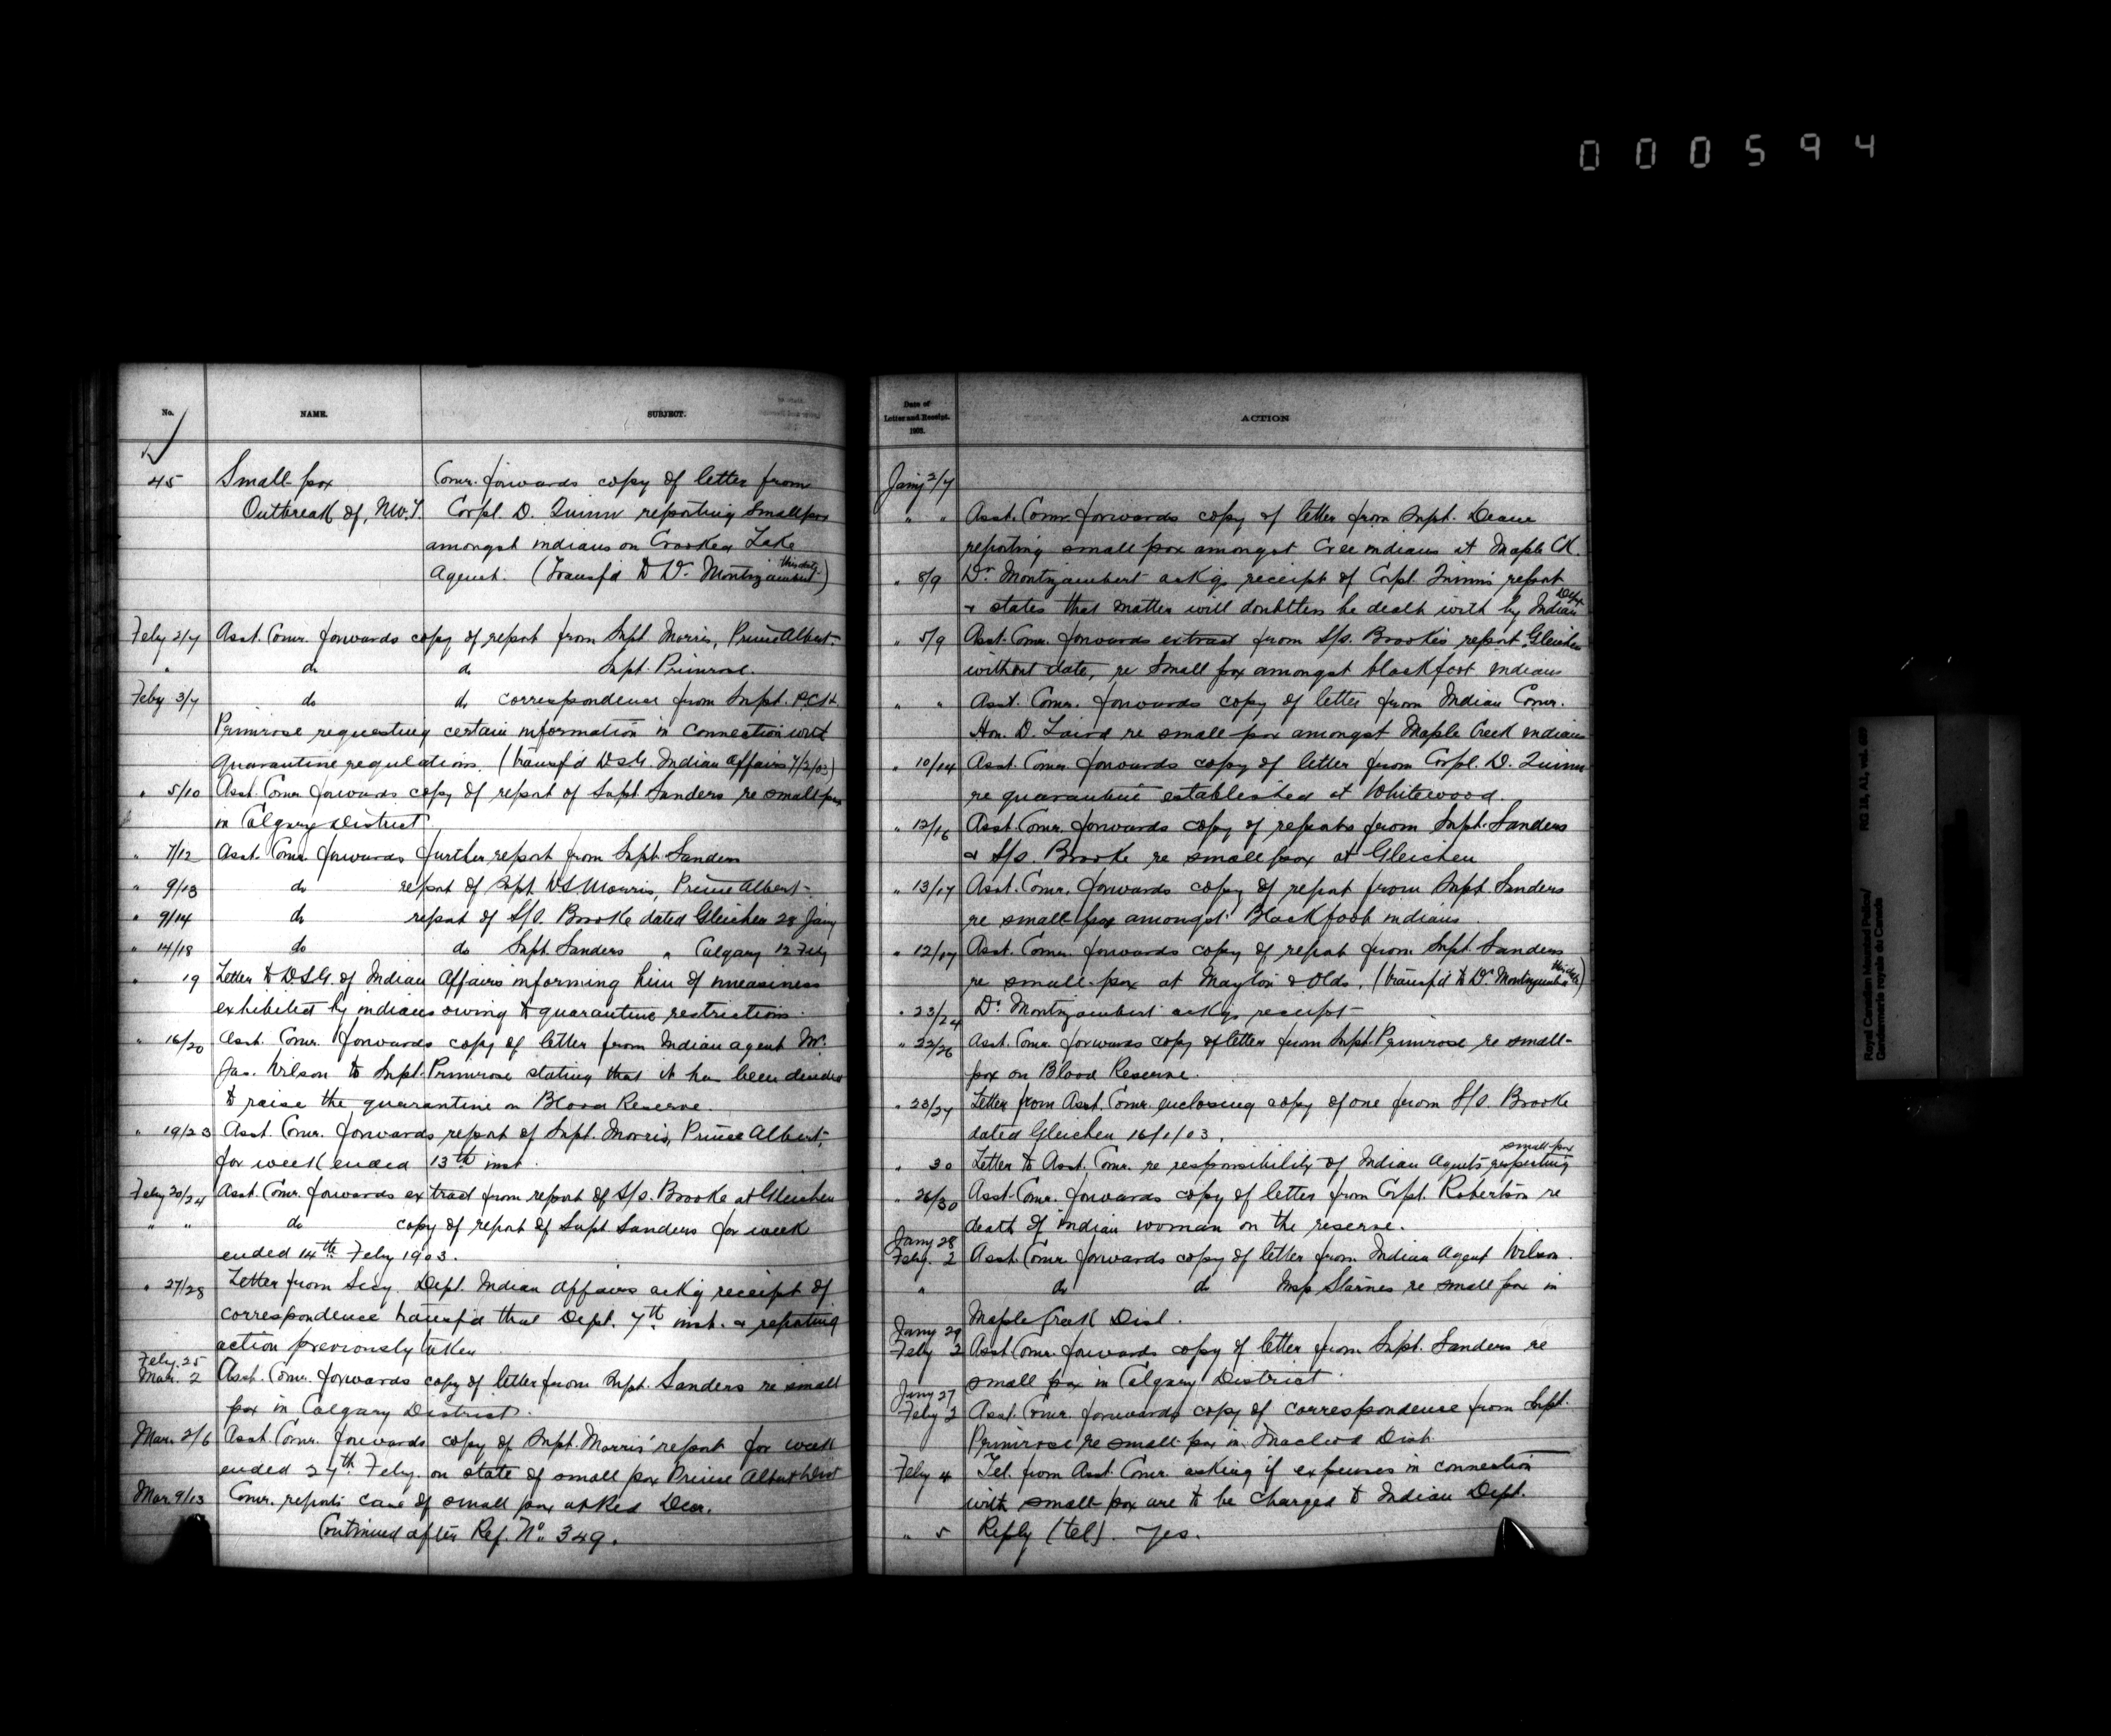 000594
No. NAME. SUBJECT.
45 Small-pox Comr. forwards copy of letter from
Outbreak of, N.W.T. Corpl. D. Quinn reporting smallpox
amongst indians on Crooked Lake
Agent. (Transf'd to Dr. Montizambert this date)
Feby 2/7 Asst. Comr. forwards copy of report from Supt. Morris, Prince Albert.
" do do Supt. Primrose.
Feby 3/7 do do correspondence from Supt. P.C.H.
Primrose requesting certain information in connection with
quarantine regulations. (transf'd D.S.G. Indian Affairs 7/2/03)
" 5/10 Asst. Comr. forwards copy of report of Supt. Sanders re smallpox
in Calgary District
" 7/12 Asst. Comr. forwards further report from Supt. Sanders
" 9/13 do report of Supt. W.S. Morris, Prince Albert-
" 9/14 do report of S/S. Brooke dated Gleichen 28 Jany
" 14/18 do do Supt. Sanders " Calgary 12 Feby
" 19 Letter to D.S.G. of Indian Affairs informing him of uneasiness
exhibited by indians owing to quarantine restrictions.
" 16/20 Asst. Comr. forwards copy of letter from Indian agent Mr.
Jas. Wilson to Supt. Primrose stating that it has been decided
to raise the quarantine on Blood Reserve.
" 19/23 Asst. Comr. forwards report of Supt. Morris, Prince Albert,
for week ended 13th inst.
Feby 20/24 Asst. Comr. forwards extract from report of S/S. Brooke at Gleichen
" " do copy of report of Supt Sanders for week
ended 14th Feby 1903.
" 27/28 Letter from Secy. Dept. Indian Affairs ackg receipt of
correspondence transf'd that Dept. 7th inst. & reporting
action previously taken
Feby. 25
Mar. 2 Asst. Comr. forwards copy of letter from Supt. Sanders re small
pox in Calgary District.
Mar. 2/6 Asst. Comr. forwards copy of Supt. Morris' report for week
ended 27th Feby. on state of small pox Prince Albert Dist
Mar. 9/13 Comr. reports case of small pox at Red Deer.
Continued after Ref. No. 349.
Date of
Letter and Receipt.
1903.
ACTION
Jany 2/7
" " Asst. Comr. forwards copy of letter from Supt. Deane
reporting small pox amongst Cree indians at Maple Ck.
" 8/9 Dr. Montizambert ackgs receipt of Corpl. Quinn's report
& states that matter will doubtless be dealt with by Indian Dept.
" 5/9 Asst. Comr. forwards extract from S/S. Brooke's report, Gleichen
without date, re small pox amongst blackfoot indians
" " Asst. Comr. forwards copy of letter from Indian Comr.
Hon. D. Laird re small pox amongst Maple Creek indians
" 10/14 Asst. Comr. forwards copy of letter from Corpl. D. Quinn
re quarantine established at Whitewood.
" 12/16 Asst. Comr. forwards copy of reports from Supt. Sanders
& S/S. Brooke re small pox at Gleichen
" 13/17 Asst. Comr. forwards copy of report from Supt. Sanders
re small-pox amongst Blackfoot indians.
" 12/17 Asst. Comr. forwards copy of report from Supt. Sanders
re small-pox at Mayton & Olds. (transf'd to Dr. Montizambert this date)
" 23/24 Dr. Montizambert ackgs receipt-
" 22/26 Asst. Comr. forwards copy of letter from Supt. Primrose re small-
pox on Blood Reserve.
" 23/27 Letter from Asst. Comr. enclosing copy of one from S/S. Brooke
dated Gleichen 16/1/03.
" 30 Letter to Asst. Comr. re responsibility of Indian Agents respecting small-pox
" 26/30 Asst. Comr. forwards copy of letter from Corpl. Robertson re
death of indian woman on the reserve.
Jany 28
Feby. 2 Asst. Comr. forwards copy of letter from Indian Agent Wilson.
" do do Insp Starnes re small pox in
Maple Creek Dist.
Jany 29
Feby 2 Asst. Comr. forwards copy of letter from Supt. Sanders re
small pox in Calgary District.
Jany 27
Feby 2 Asst. Comr. forwards copy of correspondence from Supt.
Primrose re small-pox in Macleod Dist.
Feby 4 Tel. from Asst. Comr. asking if expenses in connection
with small-pox are to be charged to Indian Dept.
" 5 Reply (tel). Yes.
Royal Canadian Mounted Police/
Gendarmerie royale du Canada
RG 18, A1, vol.